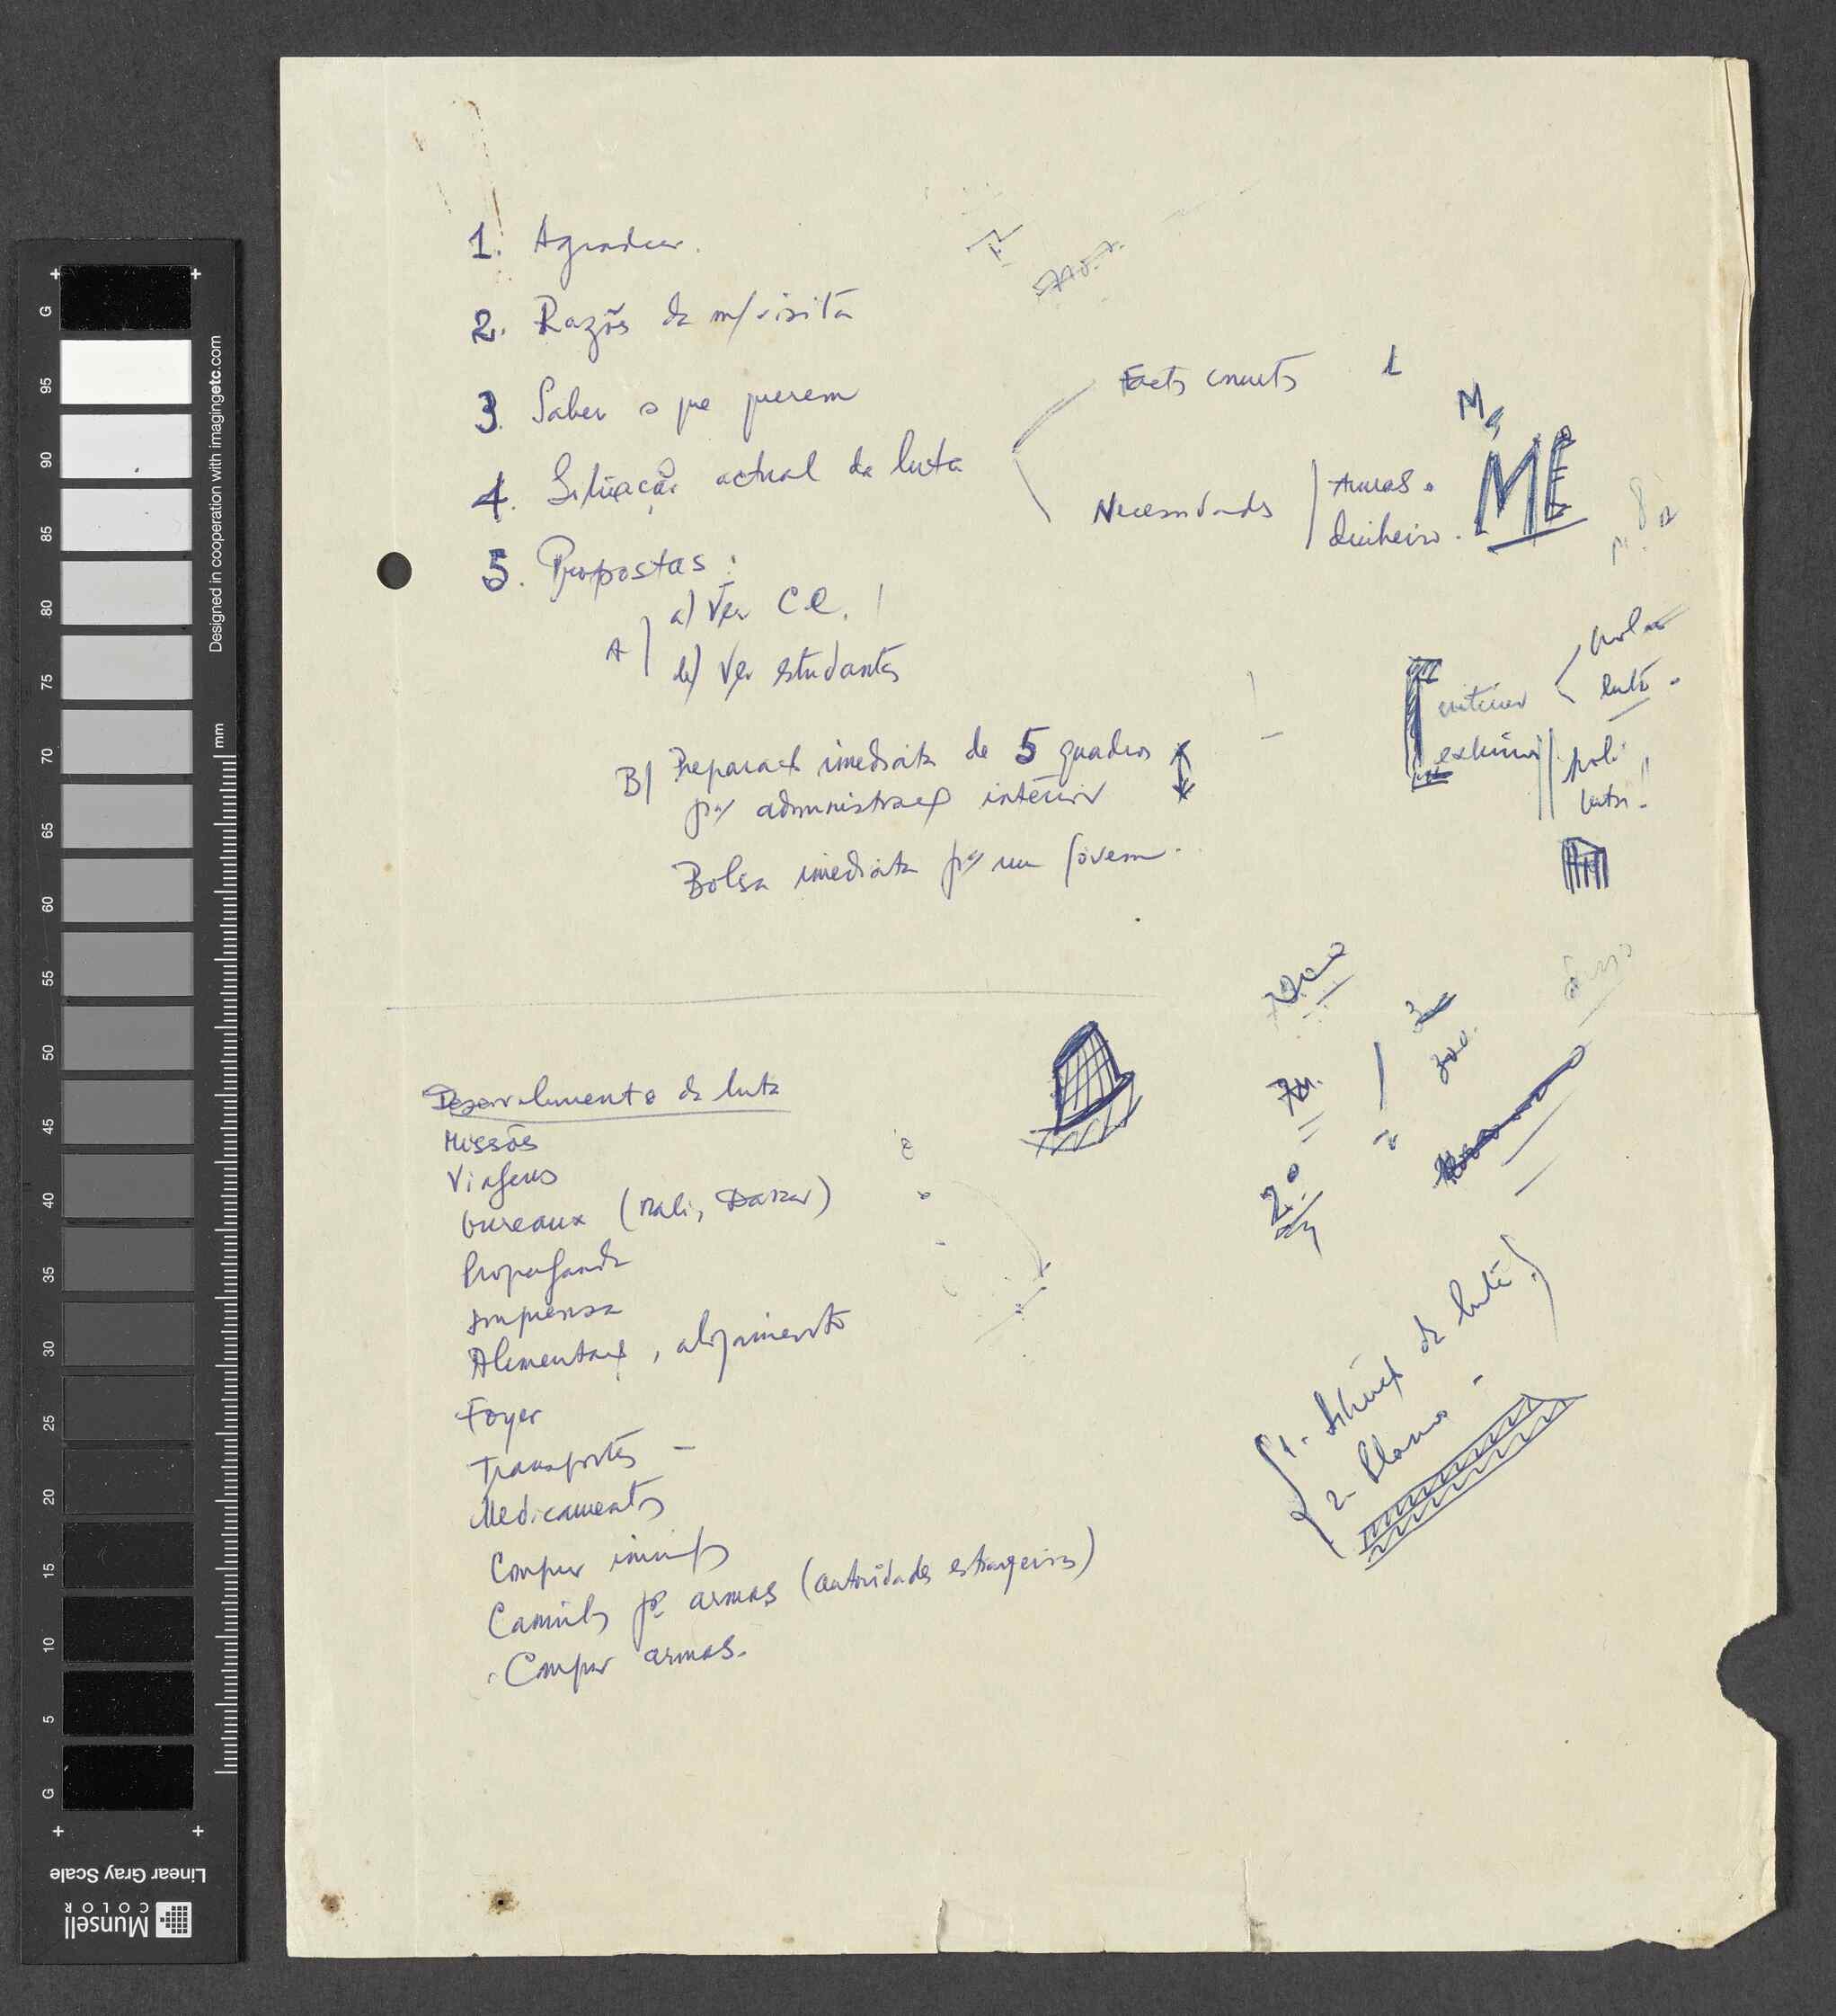 1. Agradecer.
2. Razões da m/ visita
3. Saber o que querem
4. Situação actual da luta
Factos concretos 1
Necessidades
Armas.
dinheiro.
M
ME
5. Propostas:
A) a) Ver C.C.
b) Ver estudantes
B) Preparaç imediata de 5 quadros
p/ administraç interior
Bolsa imediata p/ um jovem.
interior
luta.
exterior
poli
luta
Desenvolvimento da luta
Missões
Viagens
bureaux (Mali, Dakar)
Propaganda
Imprensa
Alimentaç, alojamento
Foyer
Transportes -
Medicamentos
Camiões pª armas (autoridades estrangeiras)
Compar armas.
300.
20
1. Situaç da luta
2- Planos -
G 95 90 85 80 75 70 65 60 55 50 45 40 35 30 25 20 15 10 5 G
mm
Designed in cooperation with imagingetc.com
Linear Gray Scale
Munsell
COLOR